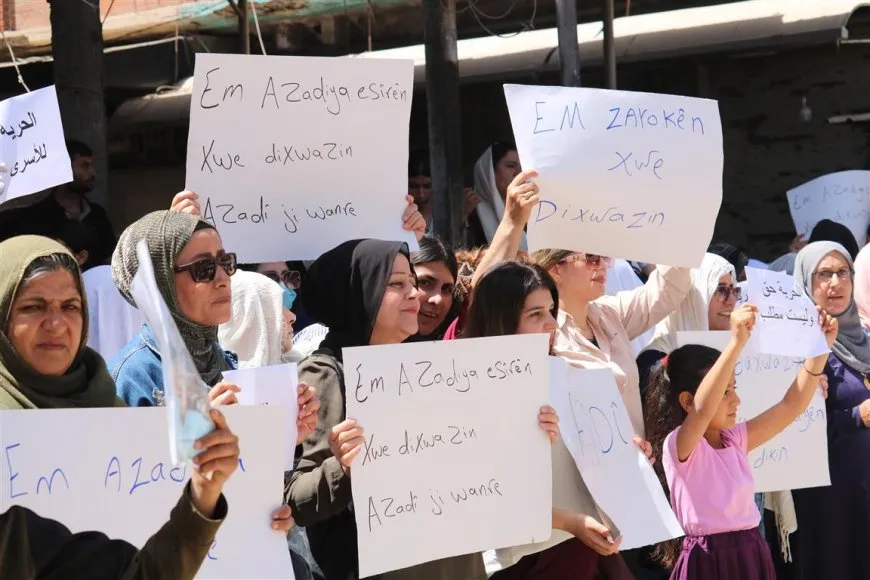 الحرية
للأسرى
Em Azadiya esirên
Xwe dixwazin
Azadî ji wanre
EM ZAROKÊN
XWE
DIXWAZIN
الحرية حق
وليست مطلب
Em AZadiya esirên
Xwe dixwazin
Azadî ji wanre
Em Azadi
dikin